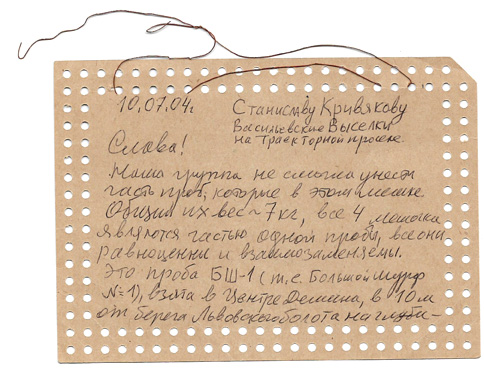 10.07.04г.
Станиславу Кривякову
Васильевские Выселки
на Траекторной просеке.
Слава!
Наша группа не смогла унести
часть проб, которые в этом мешке.
Общий их вес ~7кг, все 4 мешочка
являются частью одной пробы, все они
равноценны и взаимозаменяемы.
Это проба БШ-1 (т.е. Большой Шурф
№1), взята в Центре Демина, в 10м
от берега Львовского болота на глуби-